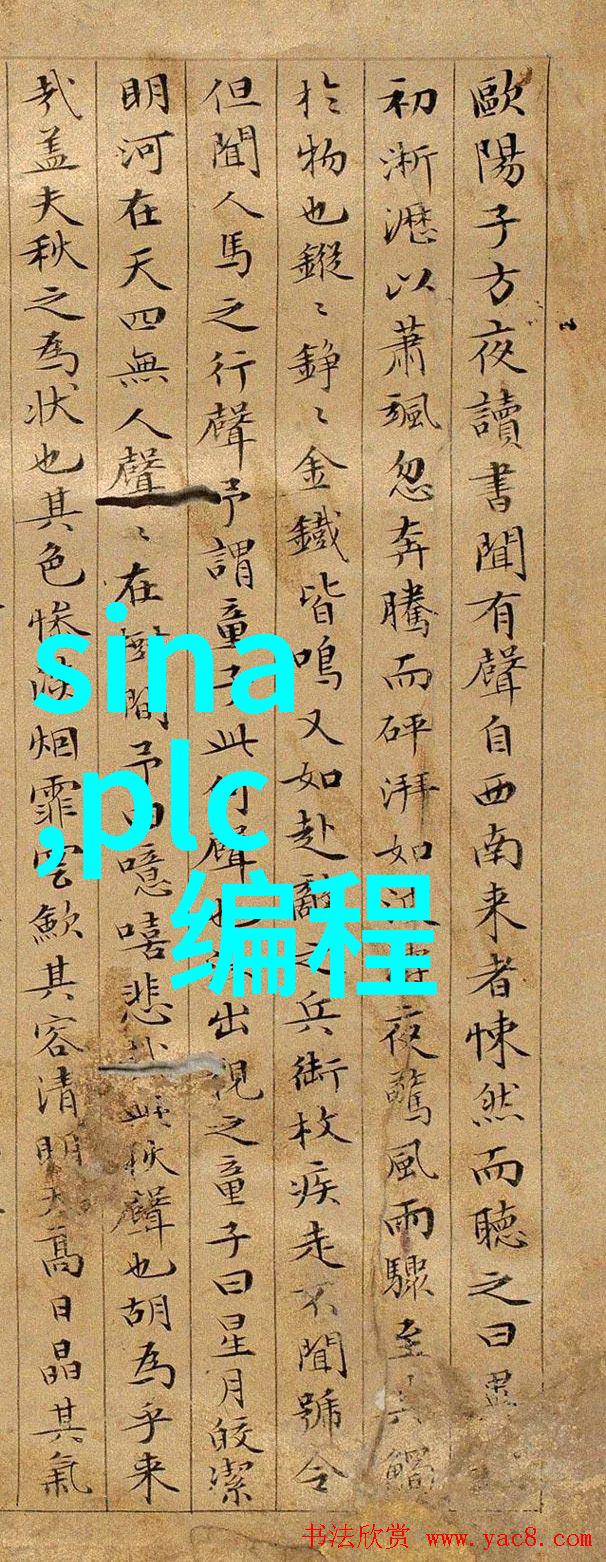 歐陽子方夜讀書聞有聲自西南来者悚然而聴之曰異
初淅瀝以蕭颯忽奔騰而砰湃如夜驚風雨驟至其觸
扵物也鏦〻錚〻金鐵皆鳴又如赴敵之兵銜枚疾走不聞號令
但聞人馬之行聲予謂童子此何聲也出視之童子曰星月皎潔
明河在天四無人聲〻在樹間予曰噫嘻悲此秋聲也胡為乎来
哉盖夫秋之為状也其色惨淡烟霏雲歛其容清明天髙日晶其氣
sina
,plc
编程
书法欣赏 www.yac8.com